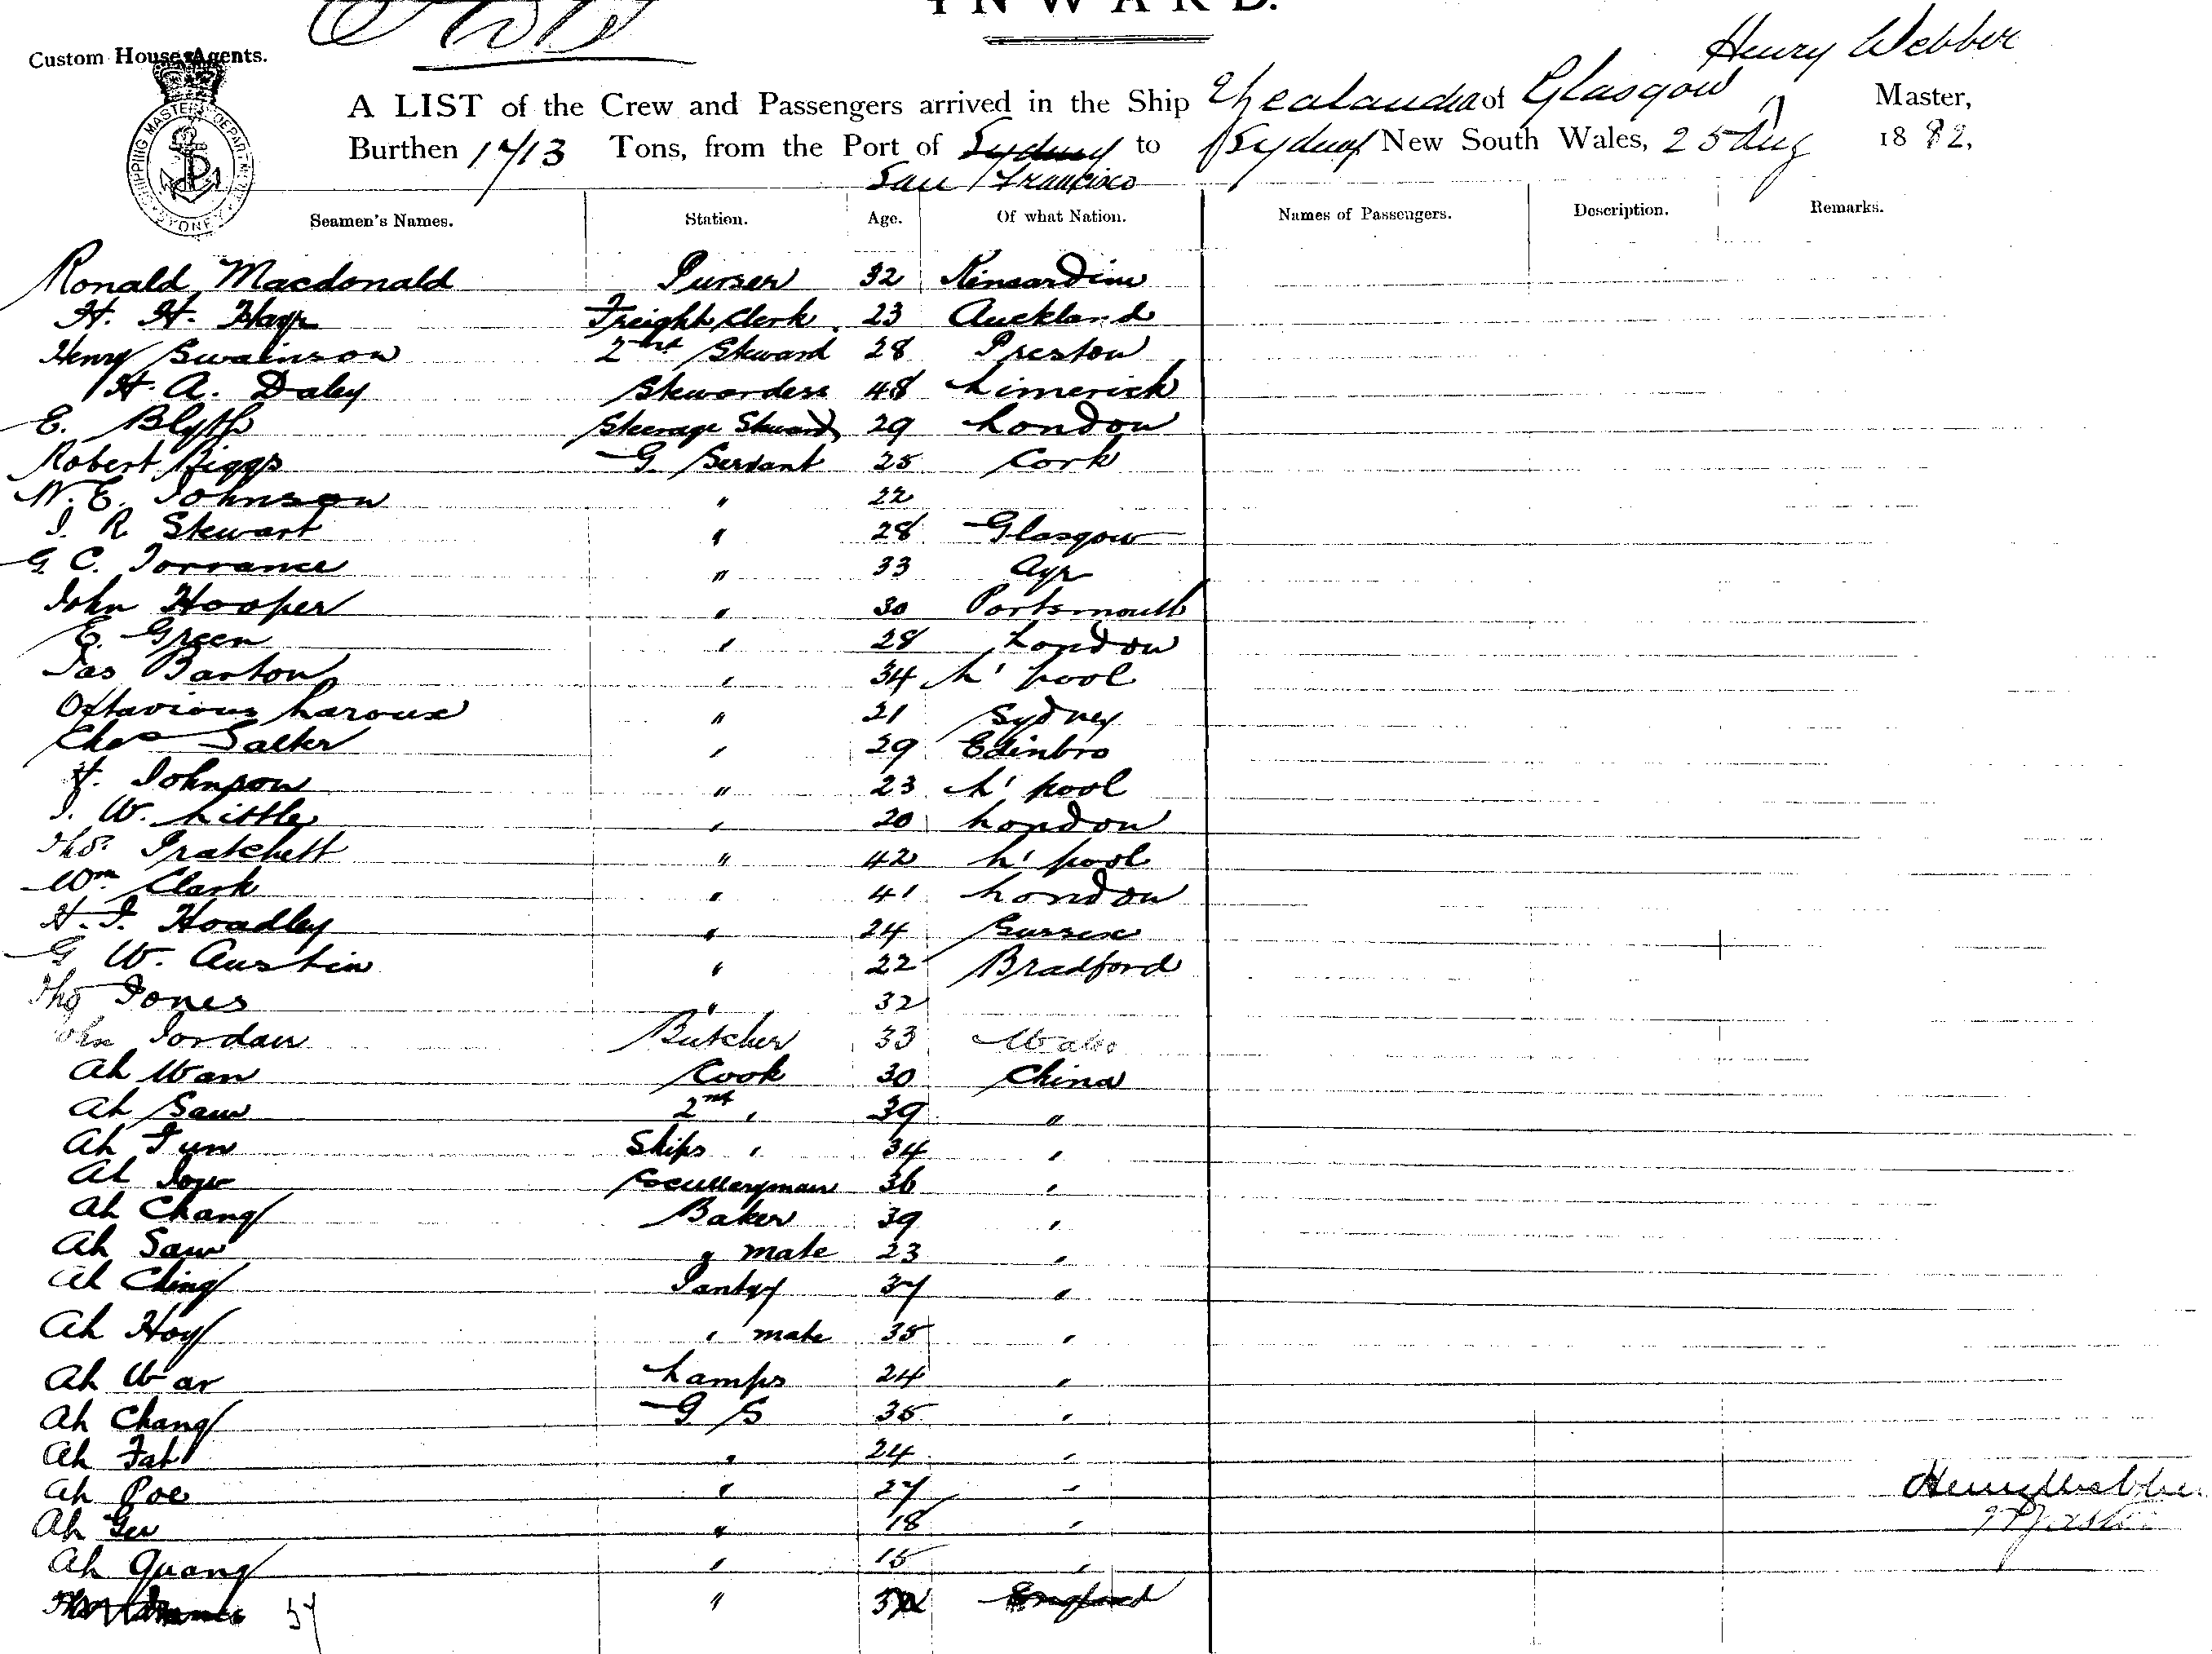 INWARD.
Custom House Agents.
Henry Webber
A LIST of the Crew and Passengers arrived in the Ship Zealandia of Glasgow Master,
Burthen 1713 Tons, from the Port of Sydney to Sydney New South Wales, 25 Aug 1882,
San Francisco
SHIPPING MASTERS DEPARTMENT SYDNEY
Seamen's Names. Station. Age. Of what Nation. Names of Passengers. Description. Remarks.
Ronald Macdonald Purser 32 Kincardine
H. H. Freight Clerk 23 Auckland
Henry Swainson 2nd Steward 28 Preston
H. A. Daley Stewardess 48 Limerick
E. Blyth Steerage Steward 29 London
Robert Biggs G Servant 25 Cork
W. E. Johnson " 22
J. R Stewart " 28 Glasgow
G C. Torrance " 33 Ayr
John Hooper " 30 Portsmouth
E. Green " 28 London
Jas Barton " 34 L'pool
Octavious Laroux " 21 Sydney
Chas Salter " 29 Edinbro
H. Johnson " 23 L'pool
J. W. Little " 20 London
Thos. Pratchett " 42 L'pool
Wm Clark " 41 London
H. J. Hoadley " 24 Sussex
G W. Austin " 22 Bradford
Thos Jones " 32
John Jordan Butcher 33 Wales
Ah Wan Cook 30 China
Ah Sam 2nd " 39 "
Ah Tun Ships " 34 "
Ah Sculleryman 36 "
Ah Chang Baker 39 "
Ah Sam " mate 23 "
Ah Ching Pantry 37 "
Ah Hoy " mate 35 "
Ah War Lamps 24 "
Ah Chang G S 35 "
Ah Fat " 24 "
Ah Poe " 27 "
Henry Webber
Ah Gee " 18 "
Master
Ah Quang " 15 "
" England